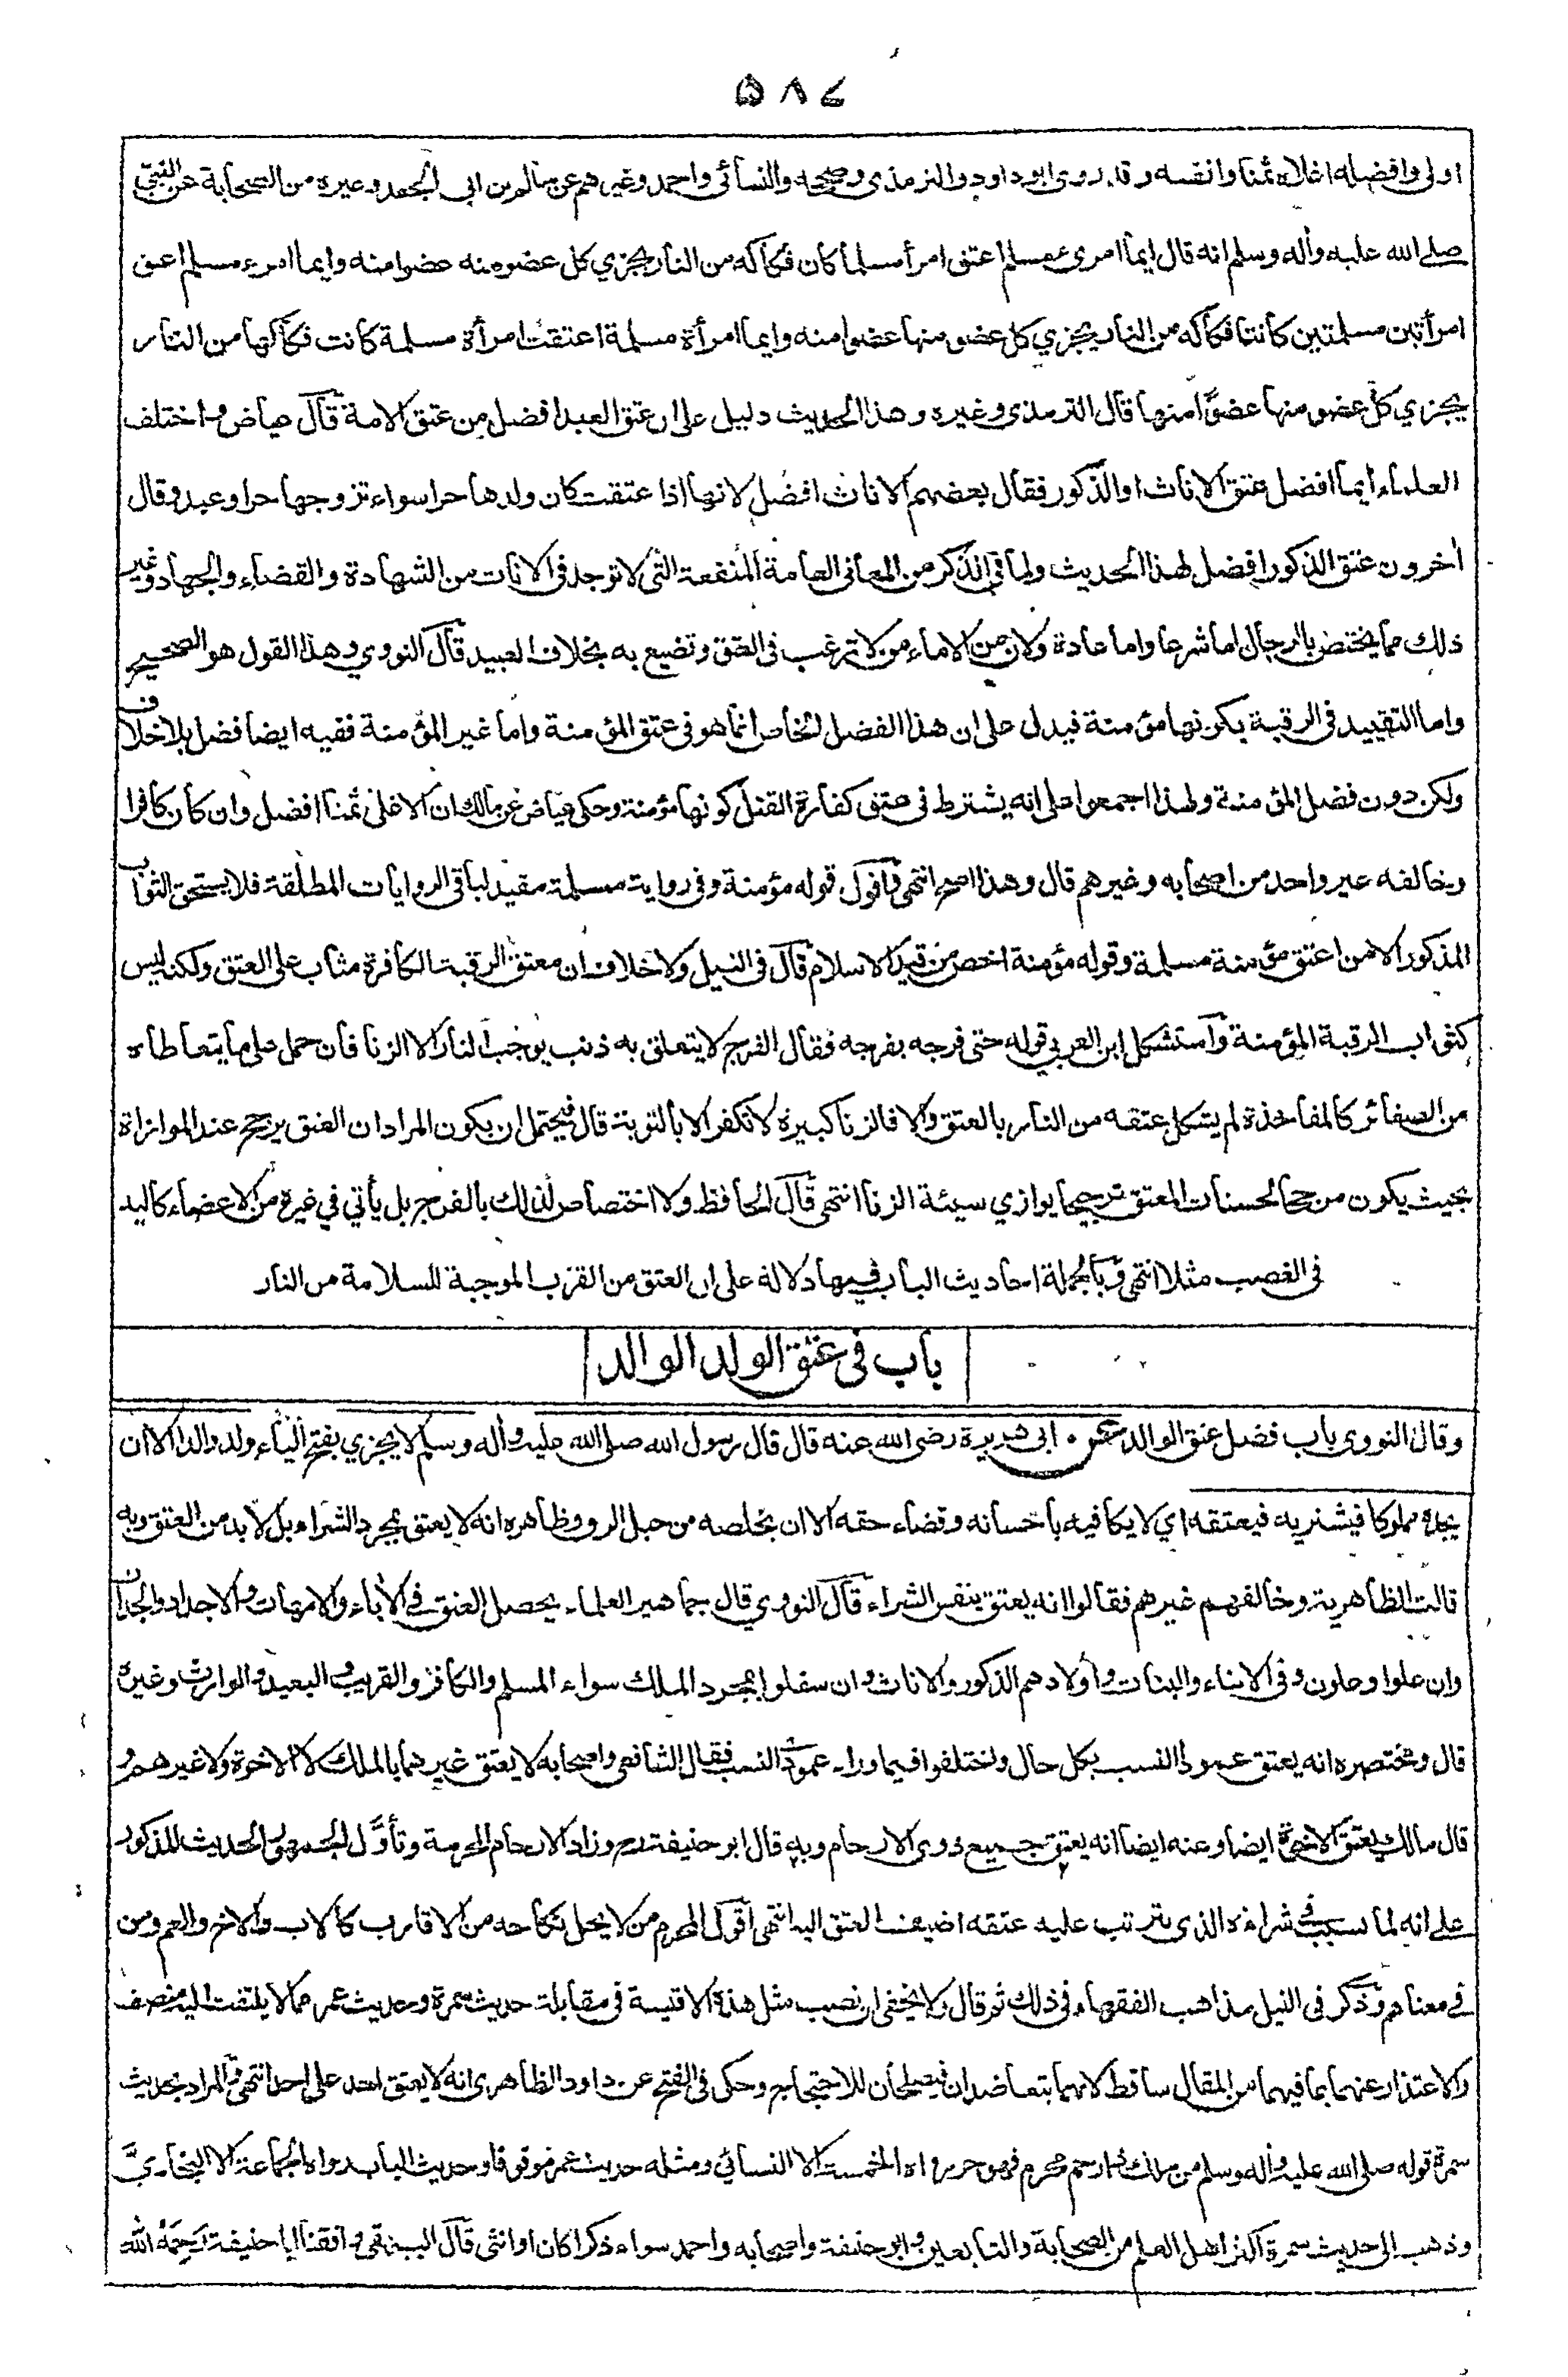 ۵۸۷
اولى وافضله اغلاه ثمنا وانفسه وقد روى ابو داود والترمذى وصححه والنسائى واحمد وغيرهم عن سالم بن ابى الجعد وغيره من الصحابة عن النبى
صلى الله عليه وأله وسلم انه قال ايما امرئ مسلم اعتق امرأ مسلما كان فكاكه من النار يجزي كل عضو منه عضوا منه وايما امرء مسلم اعتق
امرأتين مسلمتين كانتا فكاكه من النار يجزي كل عضو منها عضوا منه وايما امرأة مسلمة اعتقت امرأة مسلمة كانت فكاكها من النار
يجزي كل عضو منها عضوًا منها قال الترمذى وغيره وهذا الحديث دليل على ان عتق العبد افضل من عتق الامة قال عياض واختلف
العلماء ايما افضل عتق الاناث او الذكور فقال بعضهم الاناث افضل لانها اذا عتقت كان ولدها حرا سواء تزوجها حر او عبد وقال
أخرون عتق الذكور افضل لهذا الحديث ولما فى الذكر من المعانى العامة المنفعة التى لا توجد فى الاناث من الشهادة والقضاء والجهاد وغير
ذلك مما يختص بالرجال اما شرعا واما عادة ولان من الاماء من لا ترغب فى العتق وتضيع به بخلاف العبيد قال النووي وهذا القول هو الصحيح
واما التقييد فى الرقبة بكونها مؤمنة فيدل على ان هذا الفضل الخاص انما هو فى عتق المؤمنة واما غير المؤمنة ففيه ايضا فضل بلا خلاف
ولكن دون فضل المؤمنة ولهذا اجمعوا على انه يشترط فى عتق كفارة القتل كونها مؤمنة وحكى عياض عن مالك ان الاغلى ثمنا افضل وان كان كافرا
وخالفه غير واحد من اصحابه وغيرهم قال وهذا اصح انتهى واقول قوله مؤمنة وفى رواية مسلمة مقيد لباقى الروايات المطلقة فلا يستحق الثواب
المذكور الا من اعتق مؤمنة مسلمة وقوله مؤمنة اخص من قيد الاسلام قال فى النيل ولا خلاف ان معتق الرقبة الكافرة مثاب على العتق ولكنه ليس
كثواب الرقبة المؤمنة واستشكل ابن العربى قوله حتى فرجه بفرجه فقال الفرج لا يتعلق به ذنب يوجب النار الا الزنا فان حمل على ما يتعاطاه
من الصغائر كالمفاخذة لم يشكل عتقه من النار بالعتق والا فالزنا كبيرة لا تكفر الا بالتوبة قال فيحتمل ان يكون المراد ان العتق يرجح عند الموازاة
بحيث يكون مرجحا لحسنات المعتق ترجيحا يوازي سيئة الزنا انتهى قال الحافظ ولا اختصاص لذلك بالفرج بل يأتي في غيره من الاعضاء كاليد
فى الغصب مثلا انتهى وبالجملة احاديث الباب فيها دلالة على ان العتق من القرب الموجبة للسلامة من النار
باب فى عتق الولد الوالد
وقال النووى باب فضل عتق الوالد عن ابى هريرة رضى الله عنه قال قال رسول الله صلى الله عليه وأله وسلم لا يجزي بفتح الياء ولد والدا الا ان
يجده مملوكا فيشتريه فيعتقه اي لا يكافيه باحسانه وقضاء حقه الا ان يخلصه من حبل الرق وظاهره انه لا يعتق بمجرد الشراء بل لا بد من العتق وبه
قالت الظاهرية وخالفهم غيرهم فقالوا انه يعتق بنفس الشراء قال النووي قال جماهير العلماء يحصل العتق في الأباء والامهات والاجداد والجدات
وان علوا وعلون وفى الابناء والبنات واولادهم الذكور والاناث وان سفلوا بمجرد الملك سواء المسلم والكافر والقريب والبعيد والوارث وغيره
قال ومختصره انه يعتق عمودا النسب بكل حال واختلفوا فيما وراء عمودي النسب فقال الشافعى واصحابه لا يعتق غيرهما بالملك لا الاخوة ولا غيرهم و
قال مالك يعتق الاخوة ايضا وعنه ايضا انه يعتق جميع ذوى الارحام وبه قال ابو حنيفة رح وزاد الارحام المحرمة وتأوَّل الجمهور الحديث المذكور
على انه لما تسبب فى شرائه الذى يترتب عليه عتقه اضيف العتق اليه انتهى اقول المحرم من لا يحل نكاحه من الاقارب كالاب والاخ والعم ومن
في معناهم وذكر فى النيل مذاهب الفقهاء فى ذلك ثم قال ولا يخفى ان نصب مثل هذه الاقيسة فى مقابلة حديث سمرة وحديث عمر مما لا يلتفت اليه منصف
والاعتذار عنهما بما فيهما من المقال ساقط لانهما يتعاضدان فيصلحان للاحتجاج وحكى فى الفتح عن داود الظاهرى انه لا يعتق احد على احد انتهى والمراد بحديث
سمرة قوله صلى الله عليه وأله وسلم من ملك ذا رحم محرم فهو حر رواه الخمسة الا النسائي ومثله حديث عمر موقوفا وحديث الباب رواه الجماعة الا البخاريَّ
وذهب الى حديث سمرة اكثر اهل العلم من الصحابة والتابعين وابو حنيفة واصحابه واحمد سواء ذكرا كان او انثى قال البيهقى وافقنا ابا حنيفة رَحِمَهُ اللهُ